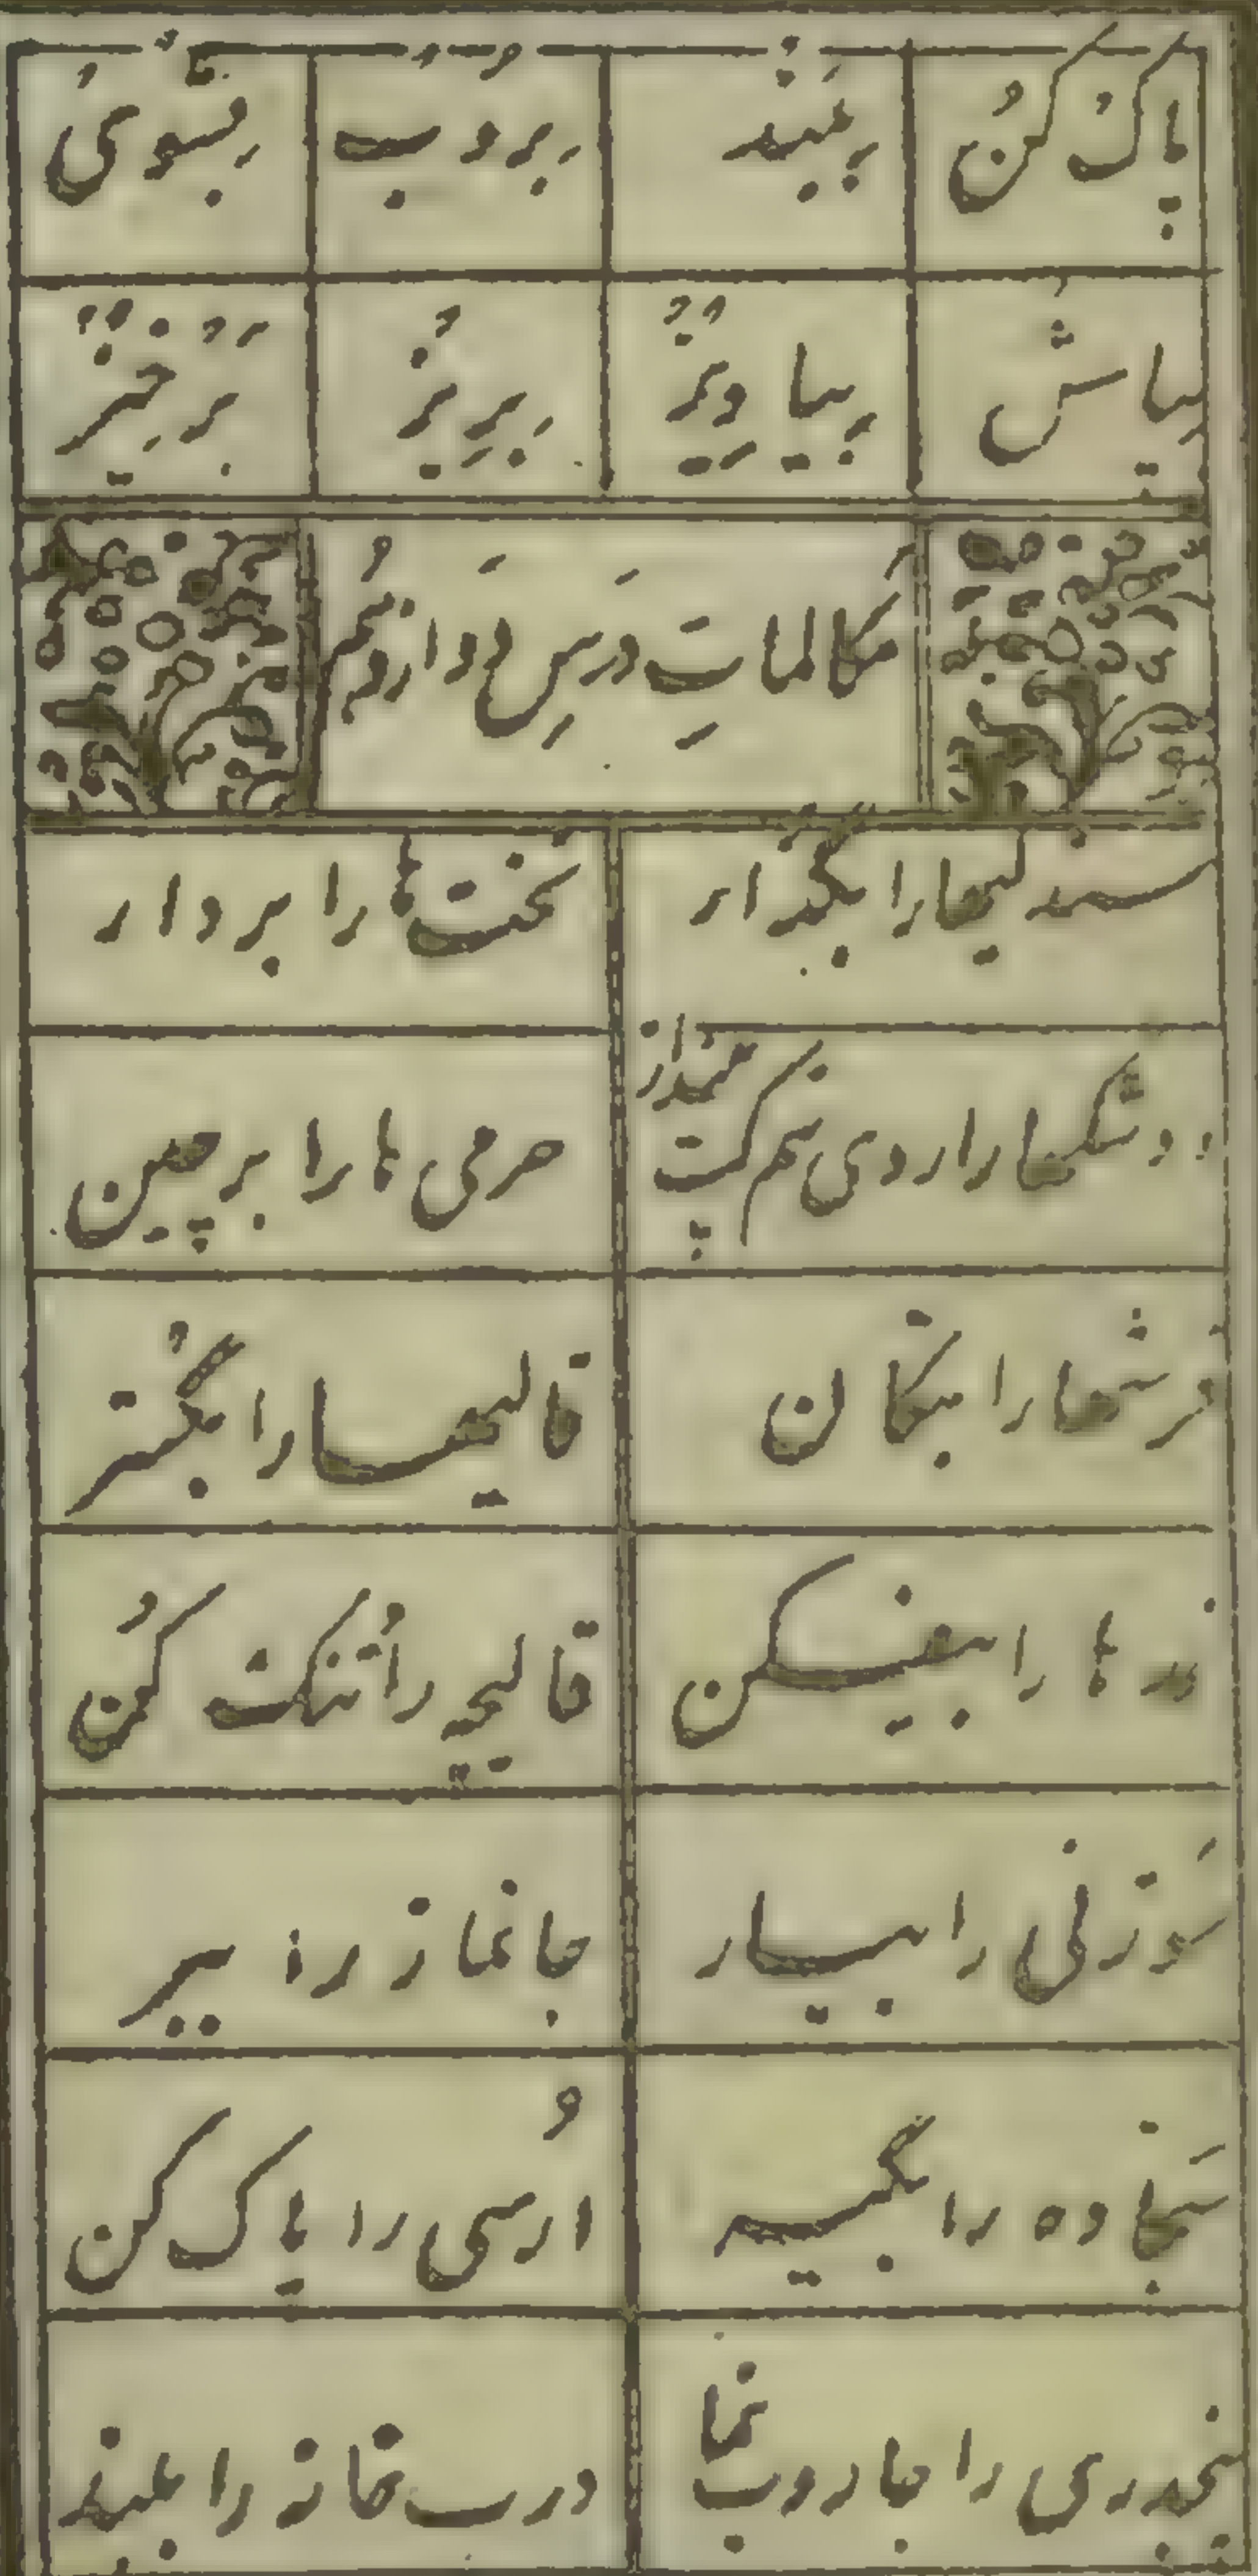 پاک کُن بِبَند بِرُوب بِشُوی
بپاش بیاویز بِریز بَرخیز
مکالماتِ درسِ دوازدهُم
صندلیها را بگذار تخت‌ها را بردار
دوشکها را روی هم بینداز هرمی‌ها را برچین
فرشها را بتکان قالیها را بگُستر
را بیفکن قالیچه را تُنک کُن
سَوزنی را بیار جانماز را ببر
سَجّاده را بگیر اُرسی را پاک کن
پنجدری را جاروب نما درب خانه را ببند